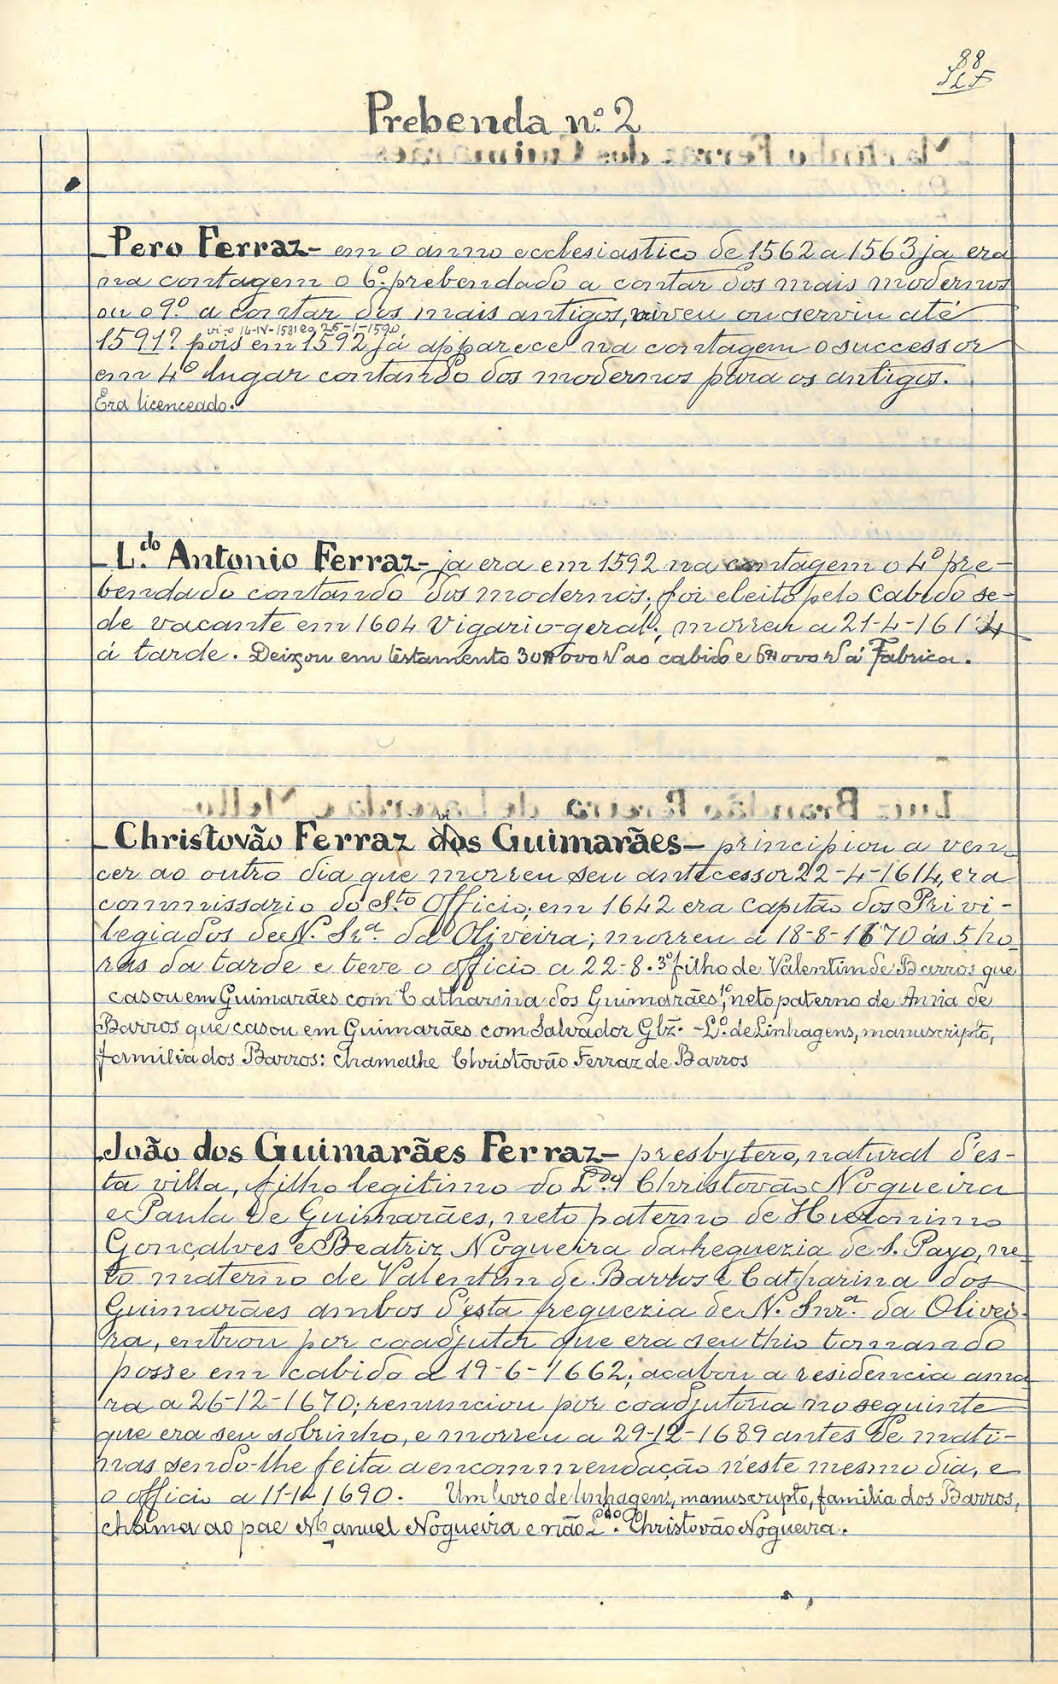 88
Prebenda n.º 2
Pero Ferraz - em o anno ecclesiastico de 1562 a 1563 ja era
na contagem o 6.º prebendado a contar dos mais modernos
ou o 9.º a contar dos mais antigos, viveu ou serviu até
vi-o 16-IV-1581 e a 25-1-1590
1591? pois em 1592 já apparece na contagem o successor
em 4.º lugar contando dos modernos para os antigos.
Era licenceado.
L.do Antonio Ferraz - ja era em 1592 na contagem o 4.º pre-
bendado contando dos modernos; foi eleito pelo Cabido se-
de vacante em 1604 Vigario-geral; morreu a 21-4-1614
á tarde. Deixou em testamento ao cabido e á Fabrica.
Christovão Ferraz dos Guimarães - principiou a ven-
cer ao outro dia que morreu seu antecessor 22-4-1614, era
commissario do S.to Officio, em 1642 era capitão dos Privi-
legiados de N. Sr.a da Oliveira; morreu a 18-8-1670 ás 5 ho-
ras da tarde e teve o officio a 22-8. 3.º filho de Valentim de Barros que
casou em Guimarães com Catharina dos Guimarães, neto paterno de Anna de
Barros que casou em Guimarães com Salvador Glz. - L.º de Linhagens, manuscripto,
familia dos Barros: chamalhe Christovão Ferraz de Barros
João dos Guimarães Ferraz - presbytero, natural d'es-
ta villa, filho legitimo do L.do Christovão Nogueira
e Paula de Guimarães, neto paterno de Hieronimo
Gonçalves e Beatriz Nogueira da freguezia de S. Payo, ne-
to materno de Valentim de Barros e Catharina dos
Guimarães ambos d'esta freguezia de N. Snr.a da Olivei-
ra, entrou por coadjutor que era seu thio tomando
posse em cabido a 19-6-1662; acabou a residencia ama-
ra a 26-12-1670; renunciou por coadjutoria no seguinte
que era seu sobrinho, e morreu a 29-12-1689 antes de mati-
nas sendo-lhe feita a encommendação n'este mesmo dia, e
o officio a 11-1-1690. Um livro de linhagens, manuscripto, familia dos Barros,
chama ao pae Manuel Nogueira e não L.do Christovão Nogueira.